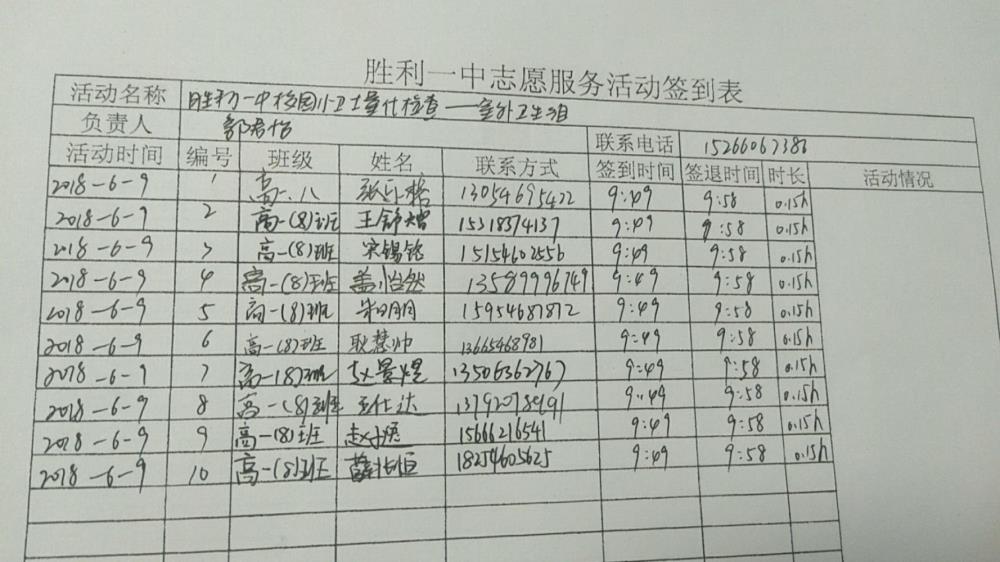 胜利一中志愿服务活动签到表
活动名称 胜利一中校园小卫士量化检查——室外卫生组
负责人 郭君怡 联系电话 15266067386
活动时间 编号 班级 姓名 联系方式 签到时间 签退时间 时长 活动情况
2018-6-9 1 高一.八 张 格 13054695422 9:49 9:58 0.15h
2018-6-9 2 高一(8)班 王舒 15318374137 9:49 9:58 0.15h
2018-6-9 3 高一(8)班 宋锡铭 15154602556 9:49 9:58 0.15h
2018-6-9 4 高一(8)班 盖怡然 13589996749 9:49 9:58 0.15h
2018-6-9 5 高一(8)班 朱明月 15954687872 9:49 9:58 0.15h
2018-6-9 6 高一(8)班 耿慧帅 13665468981 9:49 9:58 0.15h
2018-6-9 7 高一(8)班 赵景煜 13506362767 9:49 9:58 0.15h
2018-6-9 8 高一(8)班 王仕达 13792078491 9:49 9:58 0.15h
2018-6-9 9 高一(8)班 赵 15666216541 9:49 9:58 0.15h
2018-6-9 10 高一(8)班 薛 恒 18254605625 9:49 9:58 0.15h